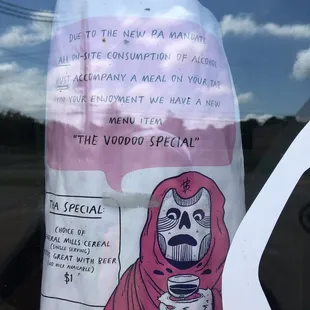 DUE TO THE NEW PA MANDATE
ALL ON-SITE CONSUMPTION OF ALCOHOL
MUST ACCOMPANY A MEAL ON YOUR TAB
FOR YOUR ENJOYMENT WE HAVE A NEW
MENU ITEM
"THE VOODOO SPECIAL"
SPECIAL:
CHOICE OF
GENERAL MILLS CEREAL
(SINGLE SERVING)
GREAT WITH BEER
MILK AVAILABLE)
$1